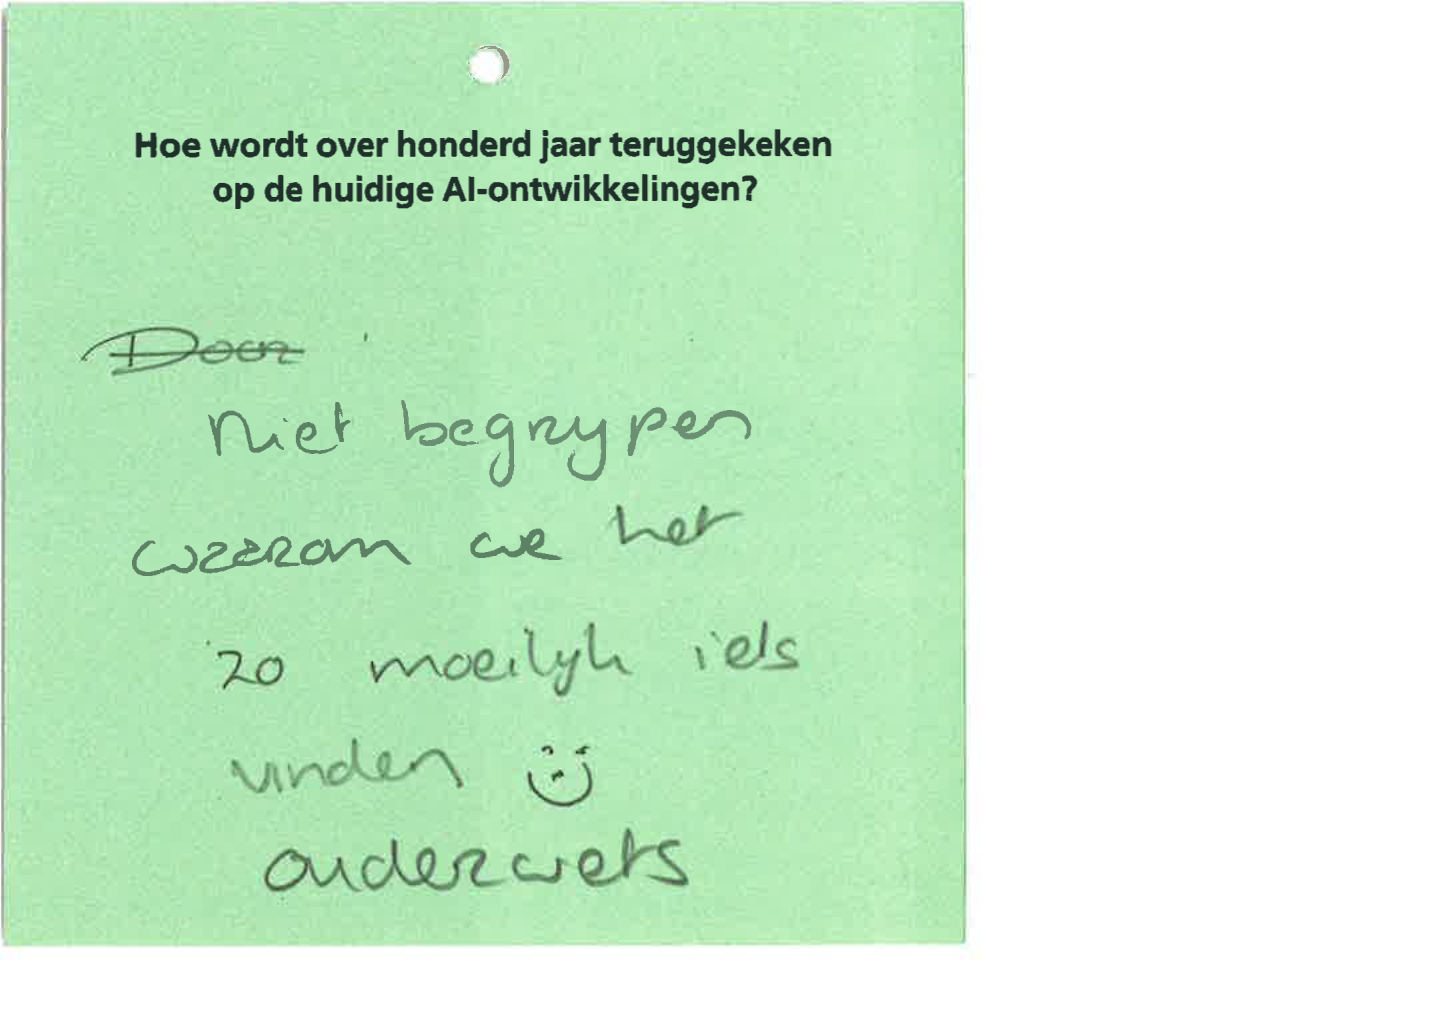 Hoe wordt over honderd jaar teruggekeken
op de huidige AI-ontwikkelingen?
Door
Niet begrypen
waarom we het
zo moeilyk iets
vinden
ouderwets